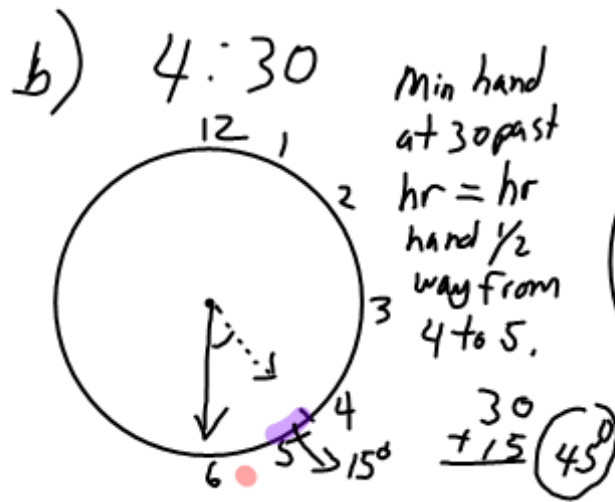 b) 4:30
12
1
2
3
4
5
6
15°
Min hand
at 30 past
hr = hr
hand 1/2
way from
4 to 5.
30
+15
45°